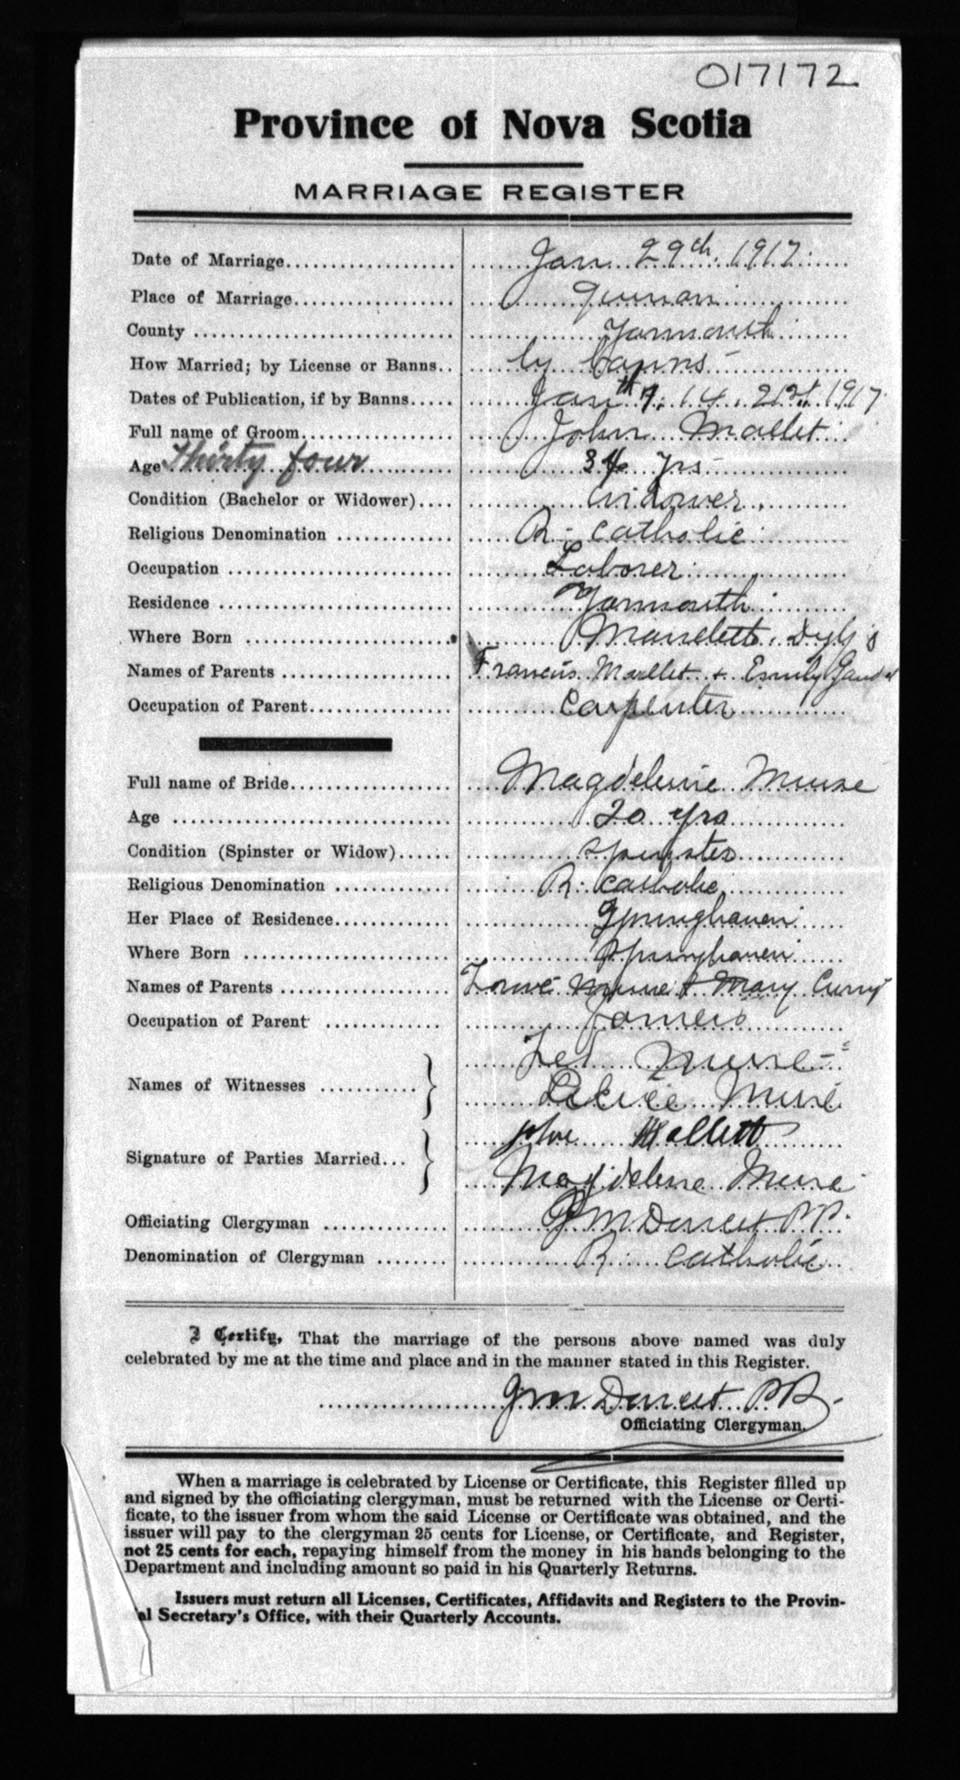 017172
Province of Nova Scotia
MARRIAGE REGISTER
Date of Marriage Jan 29th 1917
Place of Marriage Quinan
County Yarmouth
How Married; by License or Banns by banns
Dates of Publication, if by Banns Jan 7th 14 21st 1917
Full name of Groom John Mallet
Age Thirty four 34 yrs
Condition (Bachelor or Widower) widower
Religious Denomination R. Catholic
Occupation Laborer
Residence Yarmouth
Where Born
Names of Parents Francis Mallet + Emily
Occupation of Parent Carpenter
Full name of Bride Magdeleine Muise
Age 20 yrs
Condition (Spinster or Widow) spinster
Religious Denomination R. Catholic
Her Place of Residence Springhaven
Where Born Springhaven
Names of Parents Muise & Mary Curry
Occupation of Parent
Names of Witnesses Muise
Muise
Signature of Parties Married Mallett
Magdelene Muise
Officiating Clergyman P.P.
Denomination of Clergyman R. Catholic
I Certify, That the marriage of the persons above named was duly
celebrated by me at the time and place and in the manner stated in this Register.
P.P.
Officiating Clergyman.
When a marriage is celebrated by License or Certificate, this Register filled up
and signed by the officiating clergyman, must be returned with the License or Certi-
ficate, to the issuer from whom the said License or Certificate was obtained, and the
issuer will pay to the clergyman 25 cents for License, or Certificate, and Register,
not 25 cents for each, repaying himself from the money in his hands belonging to the
Department and including amount so paid in his Quarterly Returns.
Issuers must return all Licenses, Certificates, Affidavits and Registers to the Provin-
al Secretary's Office, with their Quarterly Accounts.